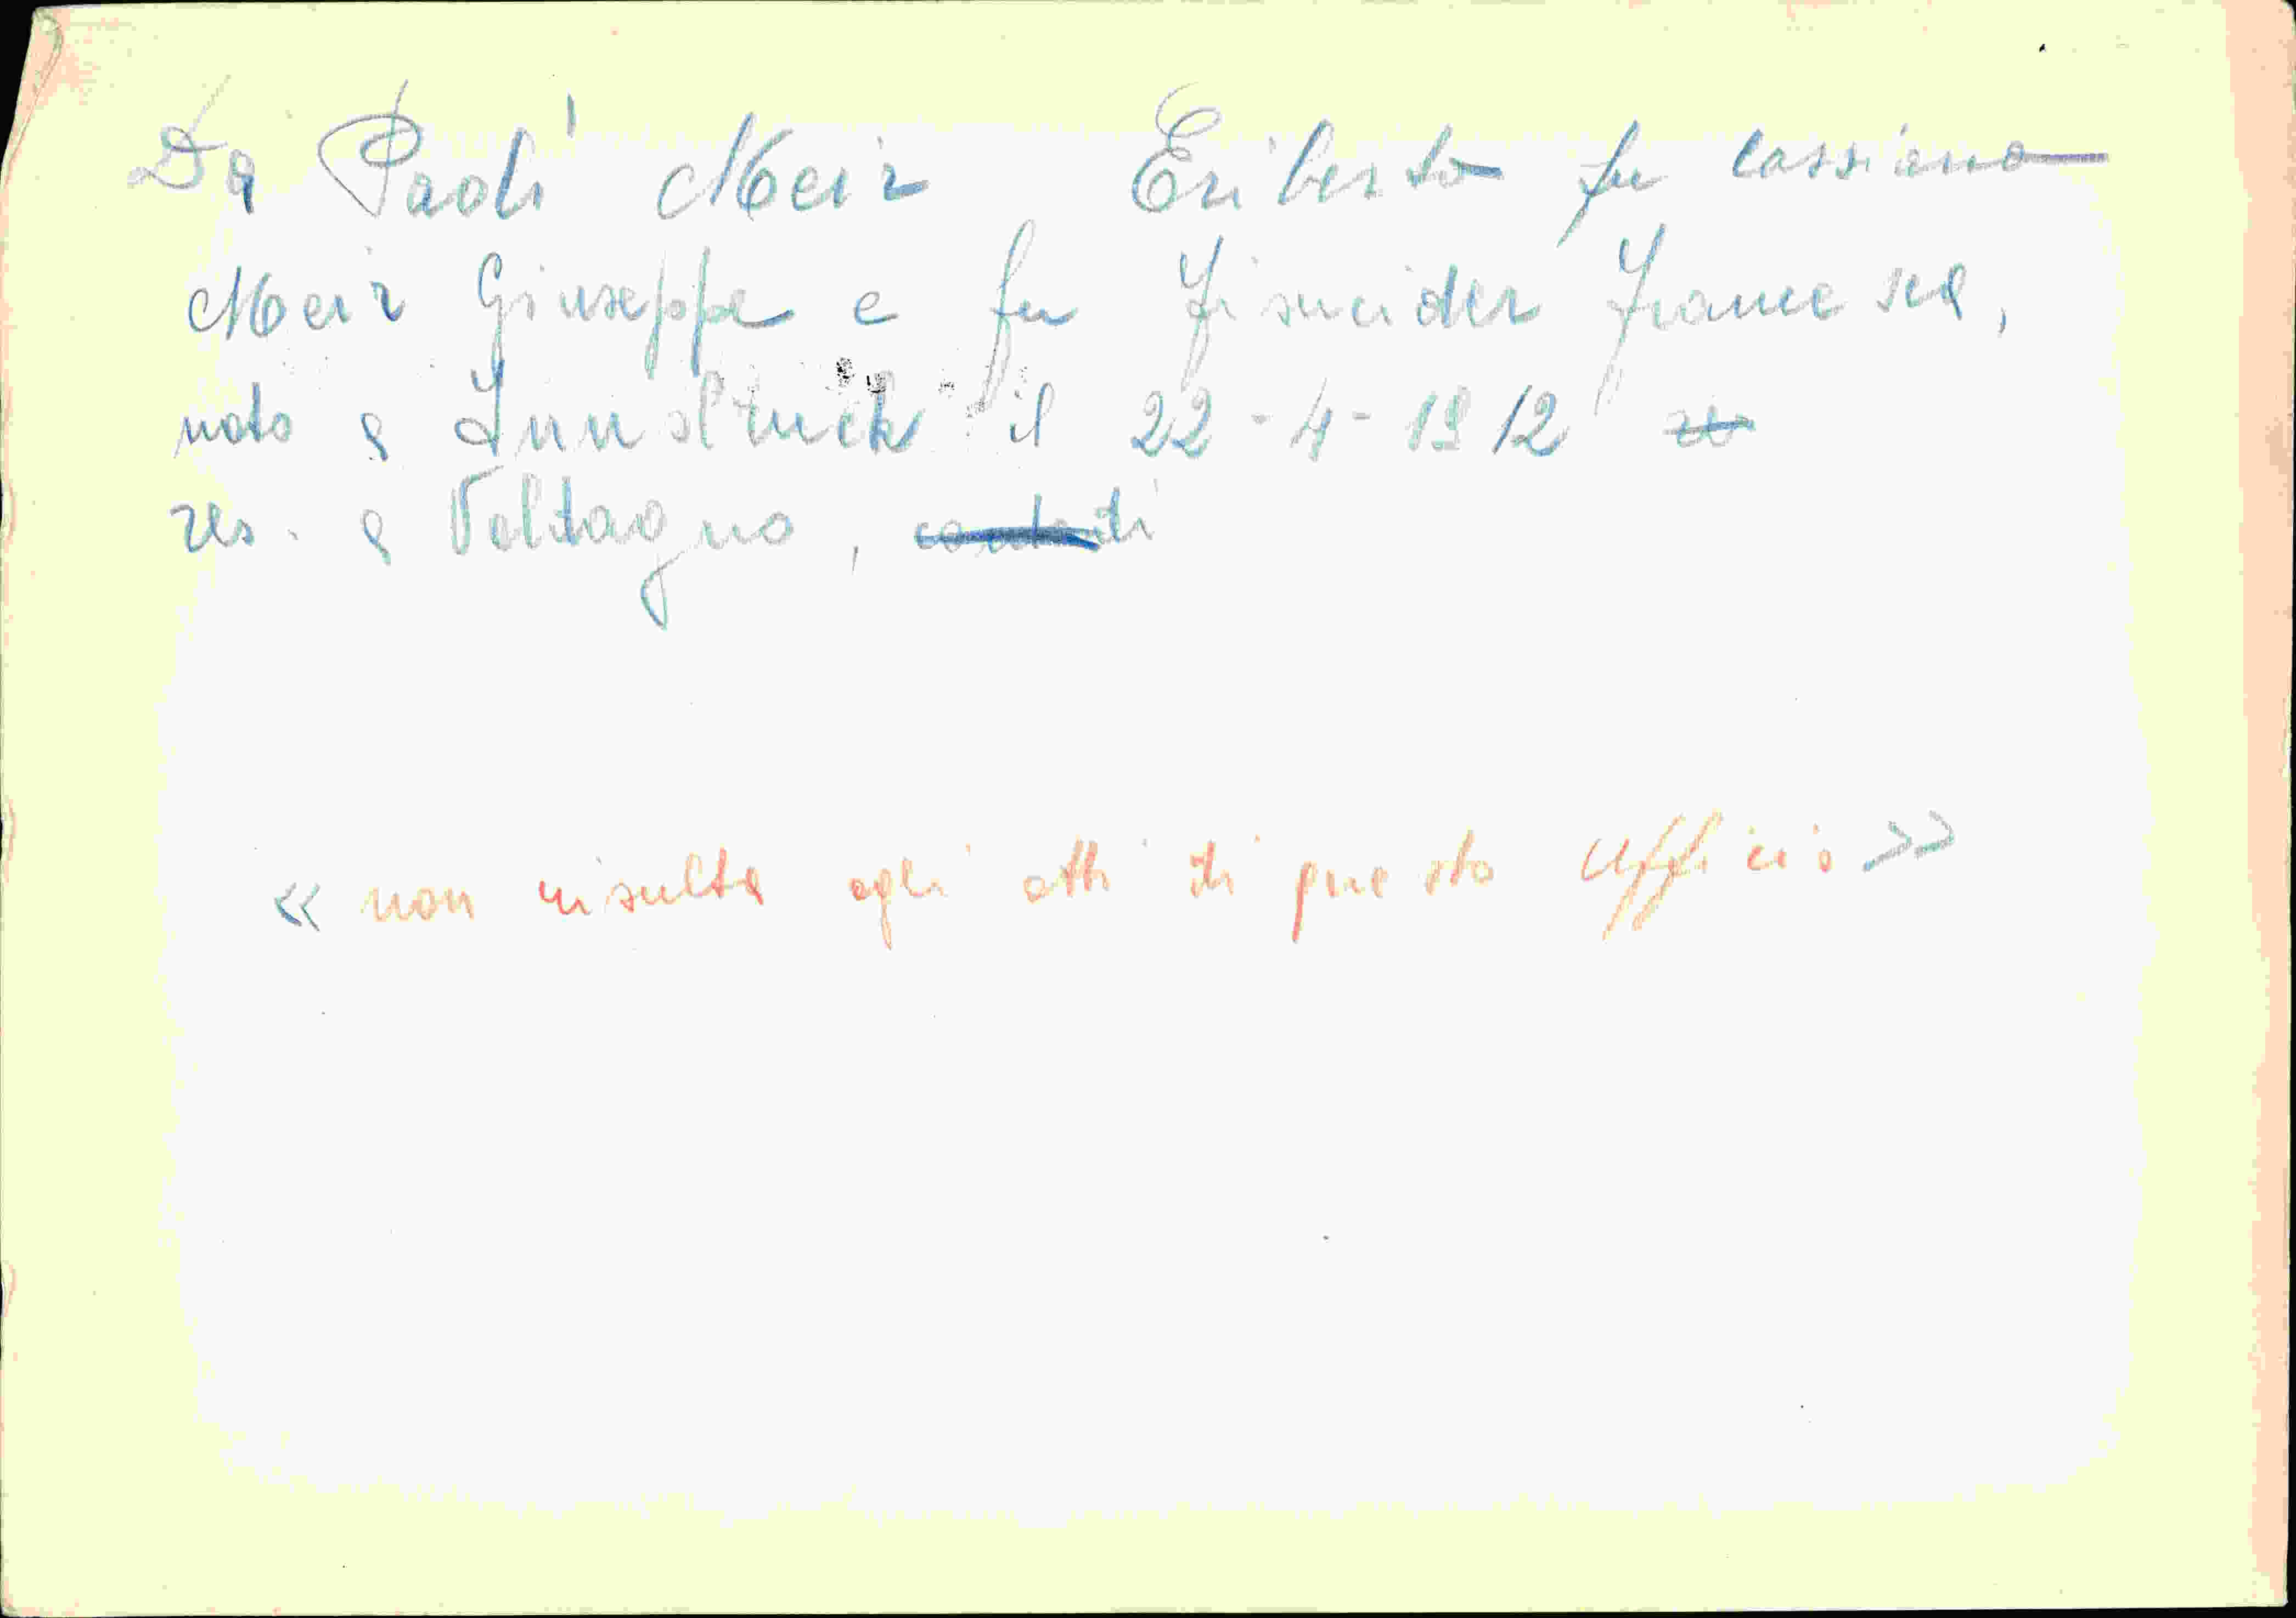 Da Paoli Meir Eriberto fu Cassiano
Meir Giuseppe e fu Fisneider Francesca,
nato a Innsbruck il 22-4-1912
res. a Voltagno, di
« non risulta agli atti di questo Ufficio »